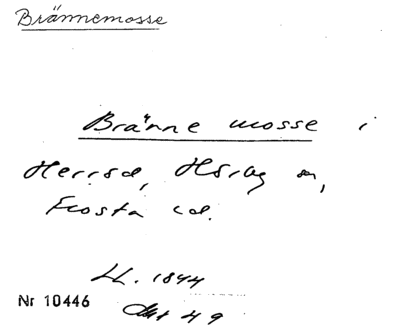 Brännemosse
Bränne mosse i
Herrsd, Hörby sn,
Frosta hd.
LL. 1844
Nr 10446
Akt 49